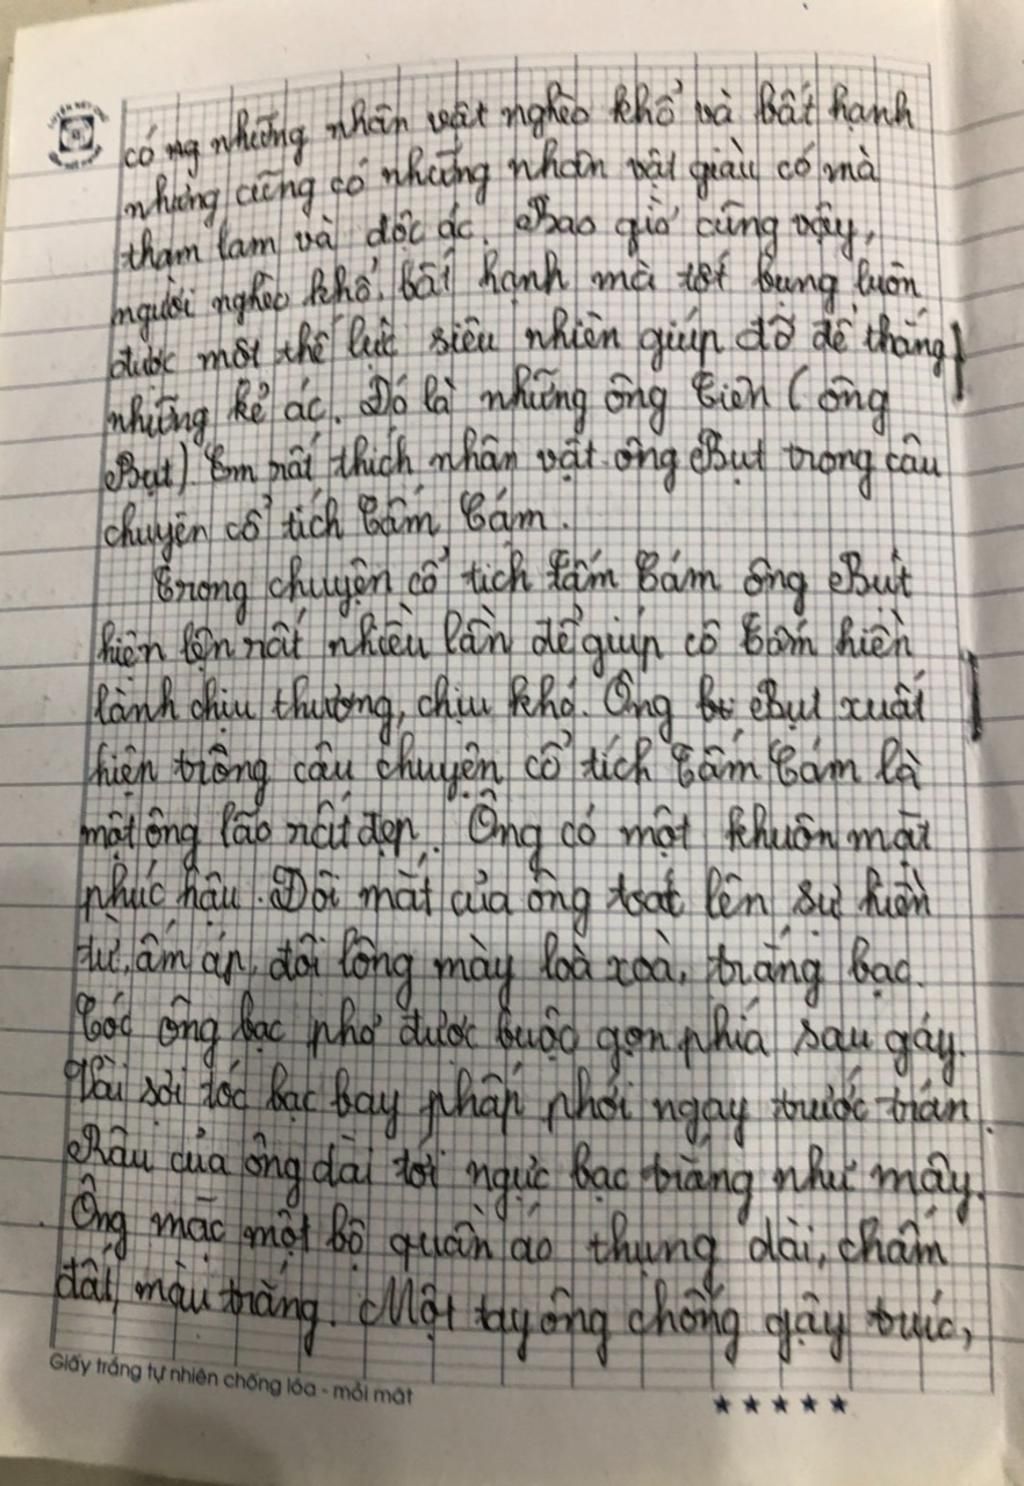 có ng những nhân vật nghèo khổ và bất hạnh
nhưng cũng có những nhân vật giàu có mà
tham lam và độc ác. Bao giờ cũng vậy,
người nghèo khổ, bất hạnh mà tốt bụng luôn
được một thế lực siêu nhiên giúp đỡ để thắng
những kẻ ác. Đó là những ông Tiên (ông
Bụt). Em rất thích nhân vật ông Bụt trong câu
chuyện cổ tích Tấm Cám.
Trong chuyện cổ tích Tấm Cám ông Bụt
hiện lên rất nhiều lần để giúp cô Tấm hiền
lành chịu thương, chịu khó. Ông Bụt xuất
hiện trong câu chuyện cổ tích Tấm Cám là
một ông lão rất đẹp. Ông có một khuôn mặt
phúc hậu. Đôi mắt của ông toát lên sự hiền
từ, ấm áp, đôi lông mày loà xoà, trắng bạc.
Tóc ông bạc phơ được buộc gọn phía sau gáy.
Vài sợi tóc bạc bay phấp phới ngay trước trán.
Râu của ông dài tới ngực bạc trắng như mây.
Ông mặc một bộ quần áo thụng dài, chấm
đất, màu trắng. Một tay ông chống gậy trúc,
Giấy trắng tự nhiên chống lóa - mỏi mắt